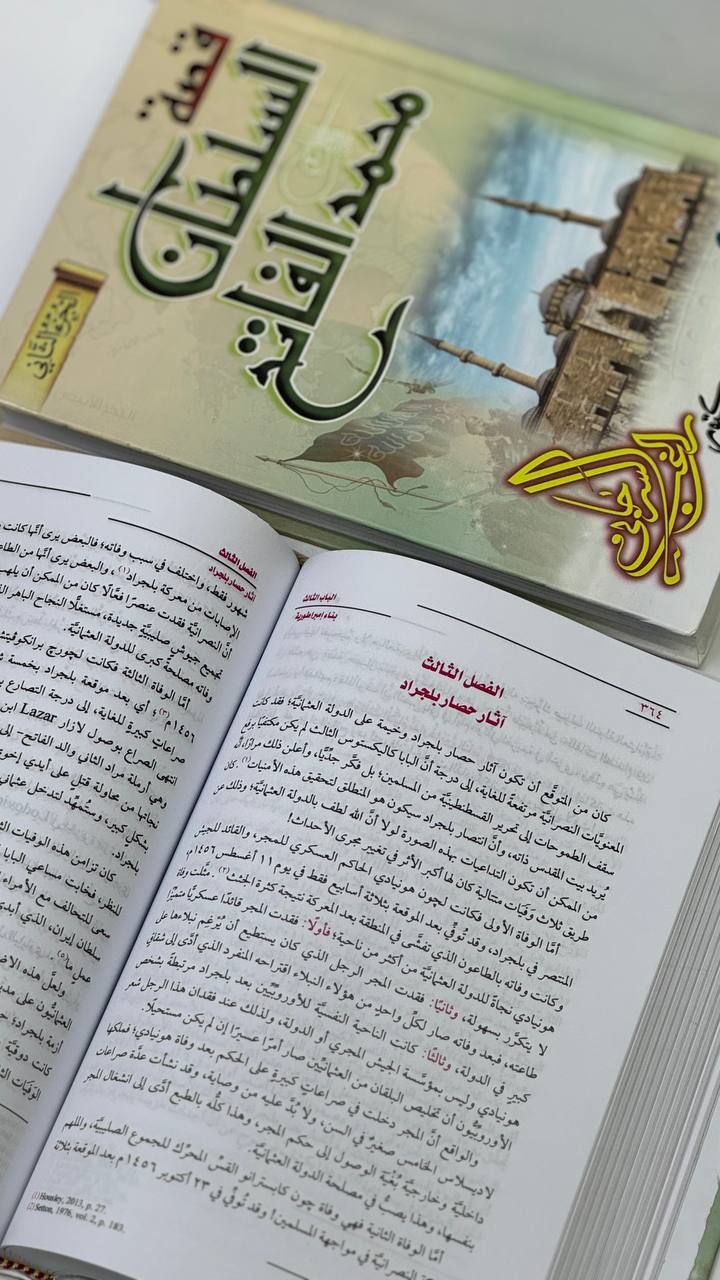 قصة
السلطان
محمد الفاتح
الجزء الثاني
راغب السرجاني
٣٦٤
الباب الثالث
بناء إمبراطورية
الفصل الثالث
آثار حصار بلجراد
كان من المتوقَّع أن تكون آثار حصار بلجراد وخيمة على الدولة العثمانيَّة؛ فقد كانت
المعنويَّات النصرانيَّة مرتفعةً للغاية، إلى درجة أنَّ البابا كاليكستوس الثالث لم يكن مكتفيًا برفع
سقف الطموحات إلى تحرير القسطنطينيَّة من المسلمين؛ بل فكَّر جدِّيًّا، وأعلن ذلك مرارًا، أنَّه
يُريد بيت المقدس ذاته، وأنَّ انتصار بلجراد سيكون هو المنطلق لتحقيق هذه الأمنيات(١). كان
من الممكن أن تكون التداعيات بهذه الصورة لولا أنَّ الله لطف بالدولة العثمانيَّة؛ وذلك عن
طريق ثلاث وفَيَات متتالية كان لها أكبر الأثر في تغيير مجرى الأحداث!
أمَّا الوفاة الأولى فكانت لجون هونيادي الحاكم العسكري للمجر، والقائد للجيش
المنتصر في بلجراد، وقد تُوفِّي بعد الموقعة بثلاثة أسابيع فقط في يوم ١١ أغسطس ١٤٥٦م،
وكانت وفاته بالطاعون الذي تفشَّى في المنطقة بعد المعركة نتيجة كثرة الجثث(٢). مثَّلت وفاة
هونيادي نجاةً للدولة العثمانيَّة من أكثر من ناحية؛ فأولًا: فقدت المجر قائدًا عسكريًّا متميِّزًا
لا يتكرَّر بسهولة، وثانيًا: فقدت المجر الرجل الذي كان يستطيع أن يُرْغِم نبلاءها على
طاعته، فبعد وفاته صار لكلِّ واحدٍ من هؤلاء النبلاء اقتراحه المنفرد الذي أدَّى إلى شقاقٍ
كبير في الدولة، وثالثًا: كانت الناحية النفسيَّة للأوروبيِّين بعد بلجراد مرتبطةً بشخص
هونيادي وليس بمؤسَّسة الجيش المجري أو الدولة، ولذلك عند فقدان هذا الرجل شعر
الأوروبيُّون أن تخليص البلقان من العثمانيِّين صار أمرًا عسيرًا إن لم يكن مستحيلًا.
والواقع أنَّ المجر دخلت في صراعاتٍ كبيرةٍ على الحكم بعد وفاة هونيادي؛ فملكها
لاديسلاس الخامس صغيرٌ في السن، ولا بُدَّ عليه من وصاية، وقد نشأت عدَّة صراعات
داخليَّة وخارجيَّة بُغْيَة الوصول إلى حكم المجر، وهذا كلُّه بالطبع أدَّى إلى انشغال المجر
بنفسها، وهذا يصبُّ في مصلحة الدولة العثمانيَّة.
أمَّا الوفاة الثانية فهي وفاة جون كابسترانو القسُّ المحرِّك للجموع الصليبيَّة، والملهم
النصرانيَّة في مواجهة المسلمين! وقد تُوفِّي في ٢٣ أكتوبر ١٤٥٦م بعد الموقعة بثلاثة
(1) Housley, 2013, p. 27.
(2) Setton, 1976, vol. 2, p. 183.
الفصل الثالث
آثار حصار بلجراد
شهور فقط، واختلف في سبب وفاته؛ فالبعض يرى أنَّها كانت
الإصابات من معركة بلجراد(١)، والبعض يرى أنَّها من
أنَّ النصرانيَّة فقدت عنصرًا فعَّالًا كان من الممكن أن
تجميع جيوش صليبيَّة جديدة، مستغلًّا النجاح الباهر
وفاته مصلحةً كبرى للدولة العثمانيَّة.
أمَّا الوفاة الثالثة فكانت لجورج
١٤٥٦م(٣)؛ أي بعد موقعة بلجراد بخمسة
صراعات كبيرة للغاية، إلى درجة التصارع
انتهى الصراع بوصول لازار Lazar ابن
وهي أرملة مراد الثاني والد الفاتح- إلى
نجاتها من محاولة قتل على أيدي
بشكل كبير، وستُمهِّد لتدخل
بلجراد.
كان تزامن هذه الوفيات
للنظر، فخابت مساعي البابا
سعى للتحالف مع الأمراء
سلطان إيران، الذي أبدى
عمل ما(٥)
ولعلَّ هذه
العثمانيُّون على
أزمة بلجراد؛
كانت دوقية
الوَفَيَات